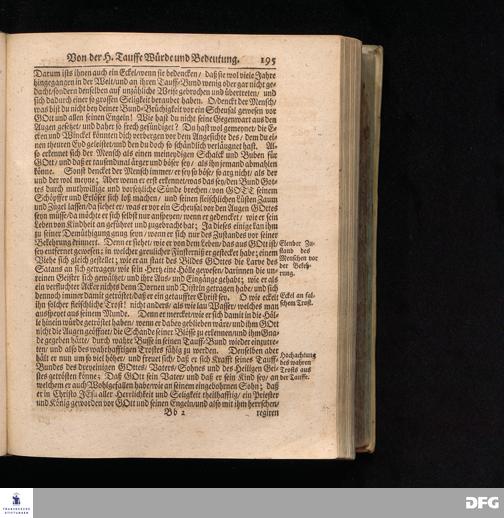 Von der H. Tauffe Würde und Bedeutung. 195
Darum ists ihnen auch ein Eckel/ wenn sie bedencken/ daß sie wol viele Jahre
hingegangen in der Welt/ und an ihren Tauff-Bund wenig oder gar nicht ge-
dacht/ sondern denselben auf unzähliche Weise gebrochen und übertreten/ und
sich dadurch einer so grossen Seligkeit beraubet haben. O/ denckt der Mensch/
was bist du nicht den deiner Bund-Brüchigkeit vor ein Scheusal gewesen vor
GOtt und allen seinen Engeln! Wie hast du nicht seine Gegenwart aus den
Augen gesetzet/ und daher so frech gesündiget? Du hast wol gemeynet/ die E-
cken und Winckel könnten dich verbergen vor dem Angesichte des/ dem du ei-
nen theuren Eyd geleistet/ und den du doch so schändlich verläugnet hast. Al-
so erkennet sich der Mensch als einen meineydigen Schalck und Buben für
GOtt/ und daß er tausendmal ärger und böser sey/ als ihn jemand abmahlen
könne. Sonst dencket der Mensch immer/ er sey so böse/ so arg nicht/ als der
und der wol meyne; Aber wenn er erst erkennet/ was das sey/ den Bund Got-
tes durch muthwillige und vorsetzliche Sünde brechen/ von GOTT seinem
Schöpffer und Erlöser sich loß machen/ und seinen fleischlichen Lüsten Zaum
und Zügel lassen/ da siehet er/ was er vor ein Scheusal vor den Augen GOttes
seyn müsse/ da möchte er sich selbst nur anspeyen/ wenn er gedencket/ wie er sein
Leben von Kindheit an geführet und zugebracht hat; Ja dieses einige kan ihm
zu seiner Demüthigung gnug seyn/ wenn er sich nur des Zustandes vor seiner
Bekehrung erinnert. Denn er siehet/ wie er von dem Leben/ das aus GOtt ist/
sey entfernet gewesen; in welcher greulicher Finsterniß er gestecket habe; einem
Viehe sich gleich gestellet; wie er an statt des Bildes GOttes die Larve des
Satans an sich getragen/ wie sein Hertz eine Hölle gewesen/ darinnen die un-
reinen Geister sich gewältzet/ und ihre Aus- und Eingänge gehabt; wie er als
ein verfluchter Acker nichts denn Dornen und Disteln getragen habe/ und sich
dennoch immer damit getröstet/ daß er ein getauffter Christ sey. O wie eckelt
ihn solcher fleischliche Trost! nicht anders/ als wie lau Wasser/ welches man
ausspeyet aus seinem Munde. Denn er mercket/ wie er sich damit in die Höl-
le hinein würde getröstet haben/ wenn er dabey geblieben wäre/ und ihm GOtt
nicht die Augen geöffnet/ die Schande seiner Blösse zu erkennen/ und ihm Gna-
de gegeben hätte/ durch wahre Busse in seinen Tauff-Bund wieder einzutre-
ten/ und also des wahrhafftigen Trostes fähig zu werden. Denselben aber
hält er nun um so viel höher/ und freuet sich/ daß er sich Krafft seines Tauff-
Bundes des dreyeinigen GOttes/ Vaters/ Sohnes und des Heiligen Gei-
stes getrösten könne; Daß GOtt sein Vater/ und daß er sein Kind sey/ an
welchem er auch Wohlgefallen habe/ wie an seinem eingebohrnen Sohn; daß
er in Christo JEsu aller Herrlichkeit und Seligkeit theilhafftig/ ein Priester
und König geworden vor GOtt und seinen Engeln/ und also mit ihm herrschen/
Bb 2 regiren
Elender Zu-
stand des
Menschen vor
der Bekeh-
rung.
Eckel an fal-
schem Trost.
Hochachtung
des wahren
Trosts aus
der Tauffe.
FRANCKESCHE
STIFTUNGEN
DFG